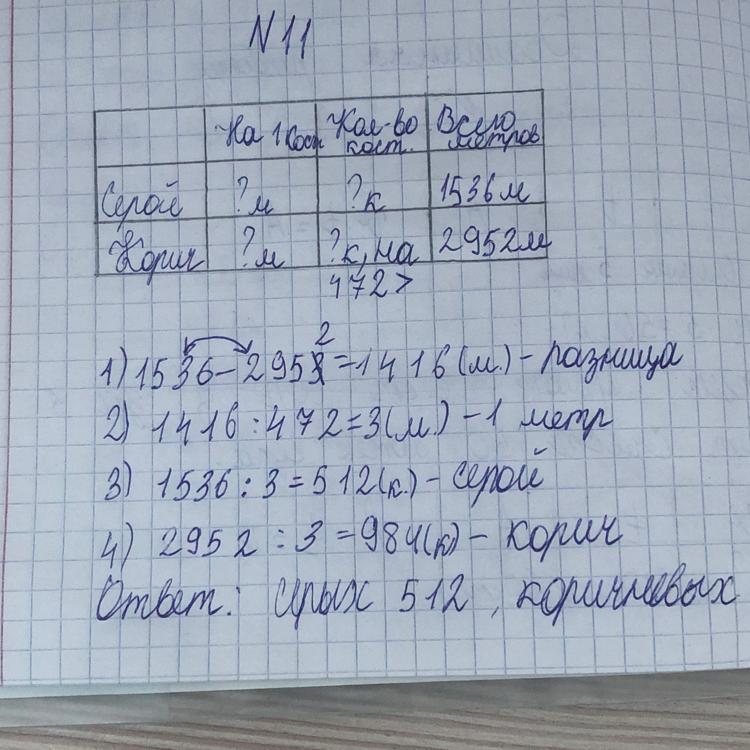 N11
На 1 кост Кол-во кост. Всего метров
Серой ?м ?к 1536м
Корич ?м ?к, на 472> 2952м
1) 1536-2952=1416(м.) - разница
2) 1416:472=3(м.) - 1 метр
3) 1536:3=512(к.) - серой
4) 2952:3=984(к) - корич
Ответ: серых 512, коричневых